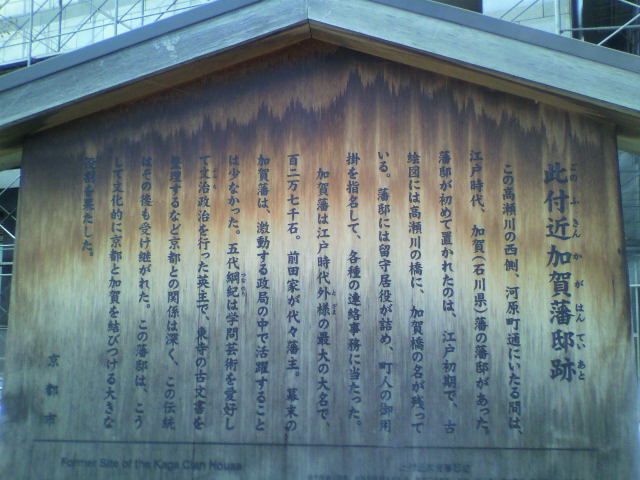 此付近加賀藩邸跡
このふきんかがはんていあと
この高瀬川の西側、河原町通にいたる間は、
江戸時代、加賀(石川県)藩の藩邸があった。
藩邸が初めて置かれたのは、江戸初期で、古
絵図には高瀬川の橋に、加賀橋の名が残って
いる。藩邸には留守居役が詰め、町人の御用
掛を指名して、各種の連絡事務に当たった。
加賀藩は江戸時代外様の最大の大名で、
とざま
百二万七千石。前田家が代々藩主。幕末の
加賀藩は、激動する政局の中で活躍すること
は少なかった。五代綱紀は学問芸術を愛好し
つなのり
て文治政治を行った英主で、東寺の古文書を
整理するなど京都との関係は深く、この伝統
はその後も受け継がれた。この藩邸は、こう
して文化的に京都と加賀を結びつける大きな
役割を果たした。
京都市
Former Site of the Kaga Clan House